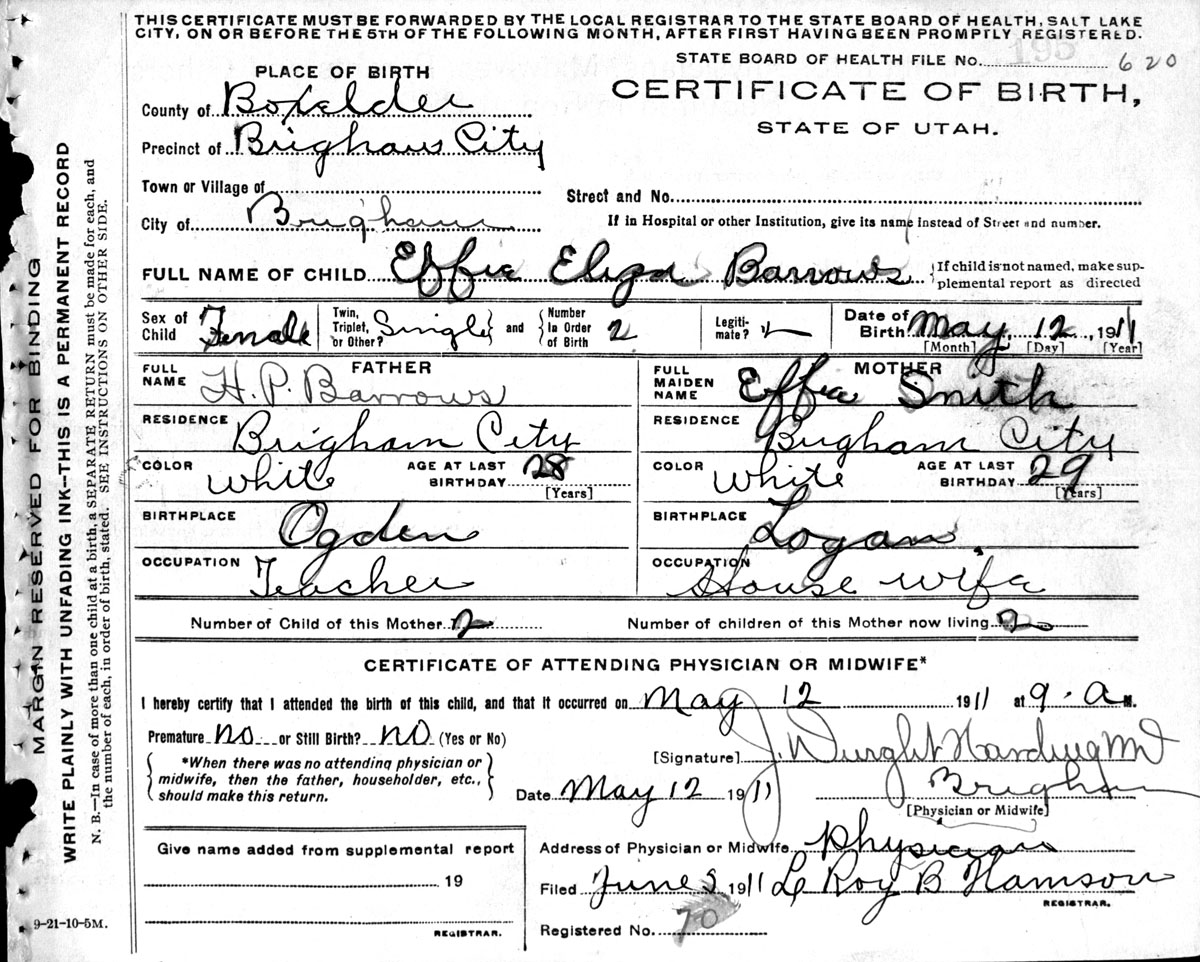 THIS CERTIFICATE MUST BE FORWARDED BY THE LOCAL REGISTRAR TO THE STATE BOARD OF HEALTH, SALT LAKE
CITY, ON OR BEFORE THE 5TH OF THE FOLLOWING MONTH, AFTER FIRST HAVING BEEN PROMPTLY REGISTERED.
195
STATE BOARD OF HEALTH FILE No. 620
PLACE OF BIRTH
CERTIFICATE OF BIRTH,
STATE OF UTAH.
County of Boxelder
Precinct of Brigham City
Town or Village of
Street and No.
City of Brigham
If in Hospital or other Institution, give its name instead of Street and number.
FULL NAME OF CHILD Effie Eliza Barrows
If child is not named, make sup-
plemental report as directed
Sex of Child Female
Twin, Triplet, or Other? Single and Number in Order of Birth 2
Legiti-mate?
Date of Birth May 12, 1911
[Month] [Day] [Year]
FATHER
FULL NAME H. P. Barrows
RESIDENCE Brigham City
COLOR White AGE AT LAST BIRTHDAY 28
[Years]
BIRTHPLACE Ogden
OCCUPATION Teacher
MOTHER
FULL MAIDEN NAME Effie Smith
RESIDENCE Brigham City
COLOR White AGE AT LAST BIRTHDAY 29
[Years]
BIRTHPLACE Logan
OCCUPATION House wife
Number of Child of this Mother 2 Number of children of this Mother now living 2
CERTIFICATE OF ATTENDING PHYSICIAN OR MIDWIFE*
I hereby certify that I attended the birth of this child, and that it occurred on May 12 1911 at 9. a M.
Premature No or Still Birth? No (Yes or No)
*When there was no attending physician or
midwife, then the father, householder, etc.,
should make this return.
[Signature] J. Harding MD
Date May 12 1911 Brigham
[Physician or Midwife]
Address of Physician or Midwife Physician
Filed June 3 1911 Le Roy B
REGISTRAR.
Registered No. 70
Give name added from supplemental report
19
REGISTRAR.
9-21-10-5M.
MARGIN RESERVED FOR BINDING
WRITE PLAINLY WITH UNFADING INK—THIS IS A PERMANENT RECORD
N. B.—In case of more than one child at a birth, a SEPARATE RETURN must be made for each, and
the number of each, in order of birth, stated. SEE INSTRUCTIONS ON OTHER SIDE.